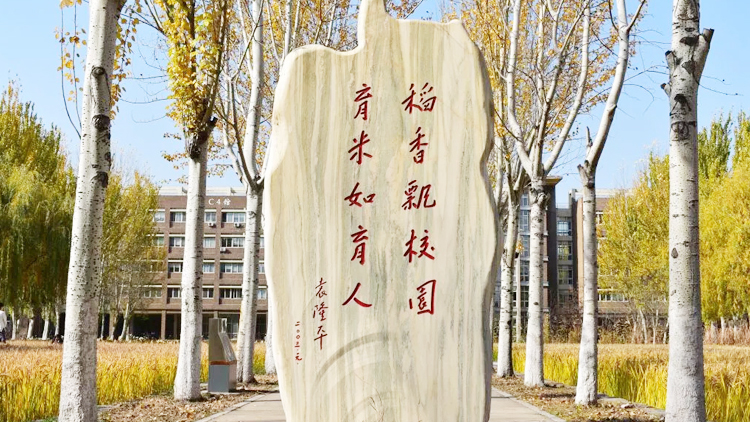 稻香飘校园
育米如育人
袁隆平
二〇〇三.元
C4馆